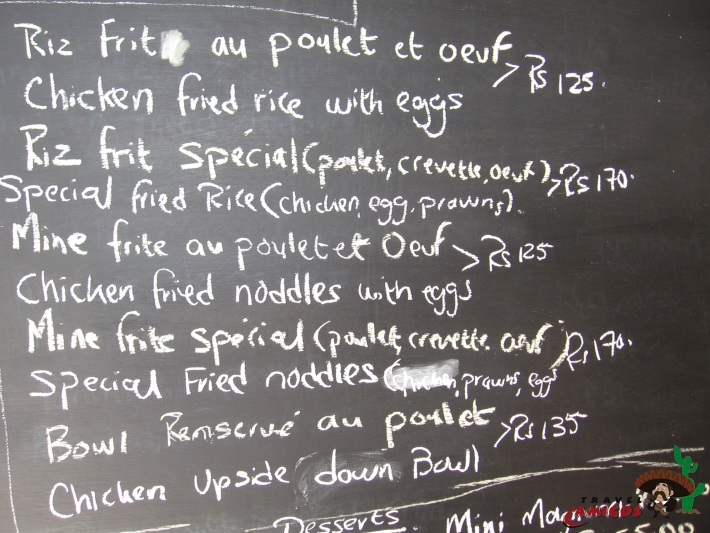 Riz Frit au poulet et oeuf > Rs 125.
Chicken fried rice with eggs
Riz frit spécial (poulet, crevette, oeuf) > Rs 170.
Special fried Rice (chicken, egg, prawns).
Mine frite au poulet et Oeuf > Rs 125
Chicken fried noddles with eggs
Mine frite spécial (poulet, crevette. oeuf) Rs 170.
Special Fried noddles (chicken, prawns, eggs
Bowl Renservé au poulet > Rs 135
Chicken upside down Bowl
Desserts. Mini
TRAVEL
AMIGOS